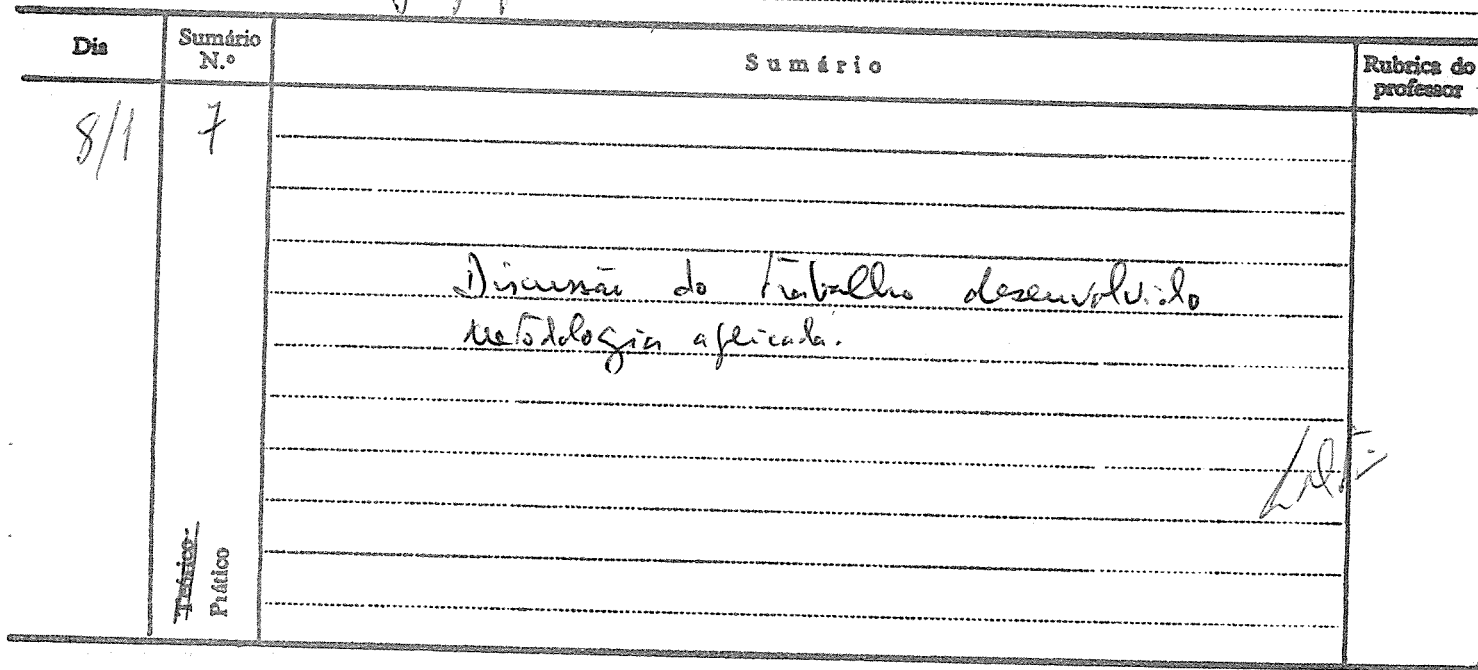 Dia
Sumário
N.º
Sumário
Rubrica do
professor
8/1
7
Discussão do trabalho desenvolvido
metodologia aplicada.
Teórico
Prático